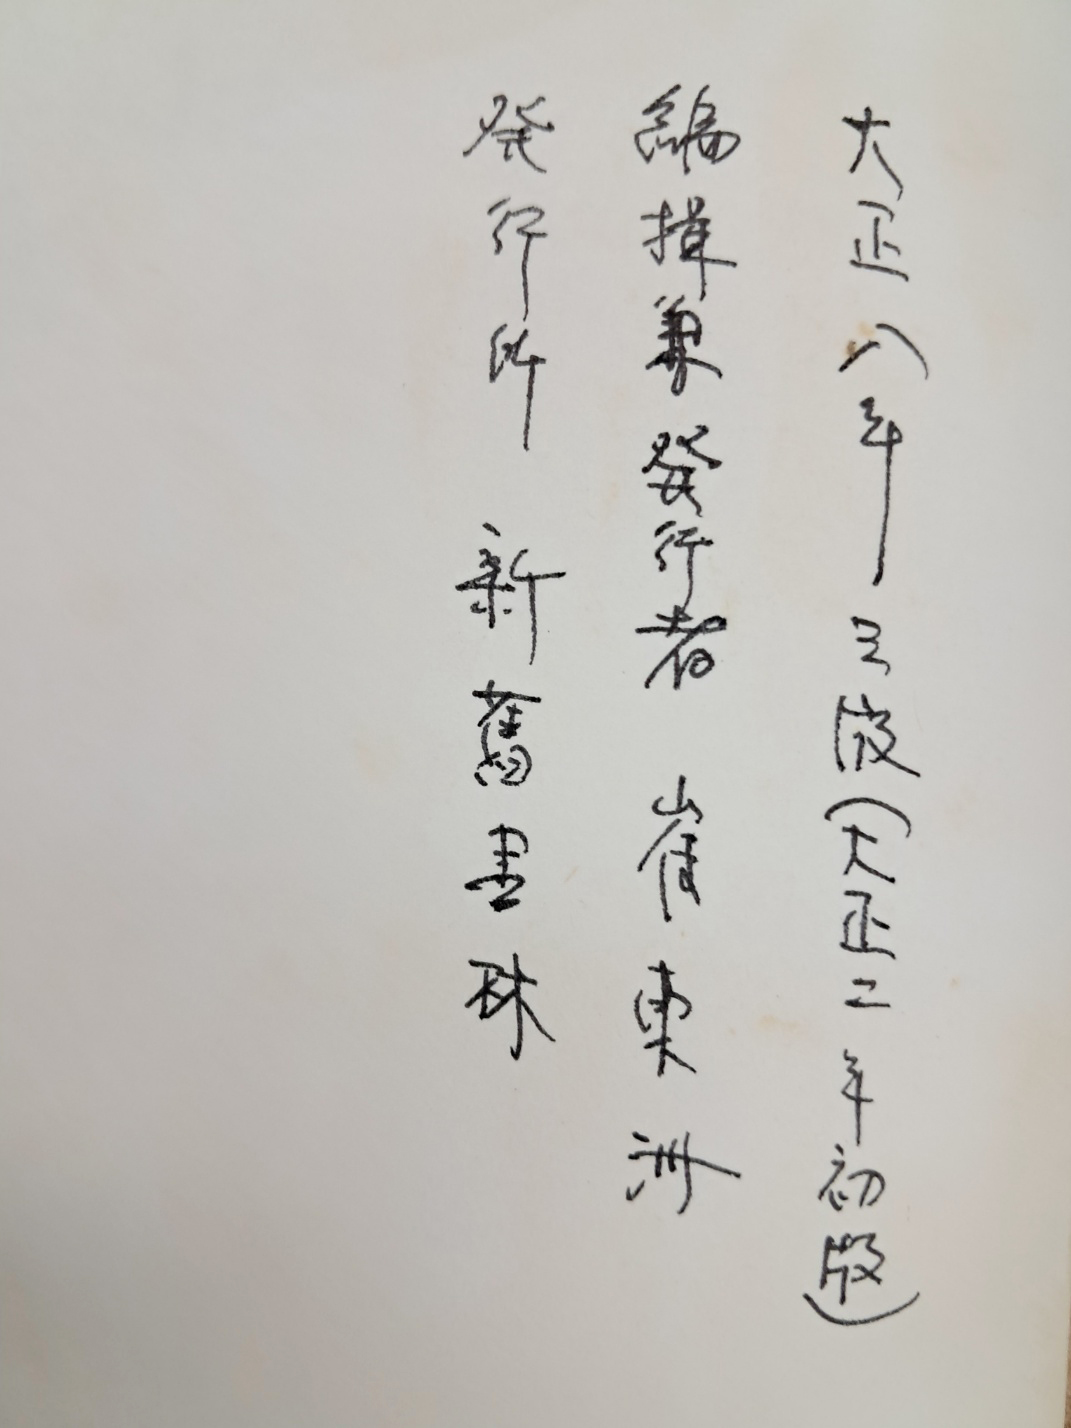 大正八年 三版(大正二年初版)
編揖兼發行者 崔東洲
発行所 新舊書林